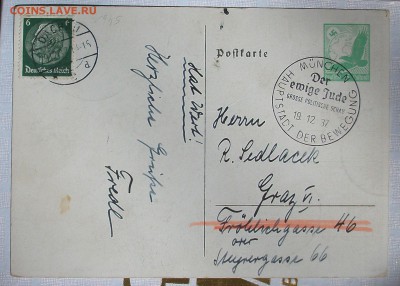 СОИНS.LAVE.RU
6
Deutsches Reich
Postkarte
MÜNCHEN
Der
ewige Jude
GROSSE POLITISCHE SCHAU
19. 12. 37
HAUPTSTADT DER BEWEGUNG
Hat Wert!
Herzliche Grüße
Fredl
Herrn
R. Sedlacek
Graz VI.
Fröhlichgasse 46
oder
Steyrergasse 66